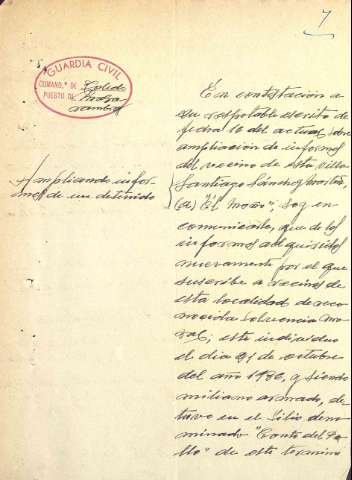 7
GUARDIA CIVIL
COMAND.ª DE Toledo
PUESTO DE
Ampliando infor-
mes de un detenido
En contestación a
su respetable escrito de
fecha 10 del actual, sobre
ampliación de informes
del vecino de esta villa
Santiago Sánchez
(a) "El Moño", soy en
comunicarle, que de los
informes adquiridos
nuevamente por el que
suscribe a vecinos de
esta localidad de reco-
nocida solvencia mo-
ral; este individuo
el día 21 de octubre
del año 1936, y siendo
miliciano armado, de-
tuvo en el sitio deno-
minado "
de este término